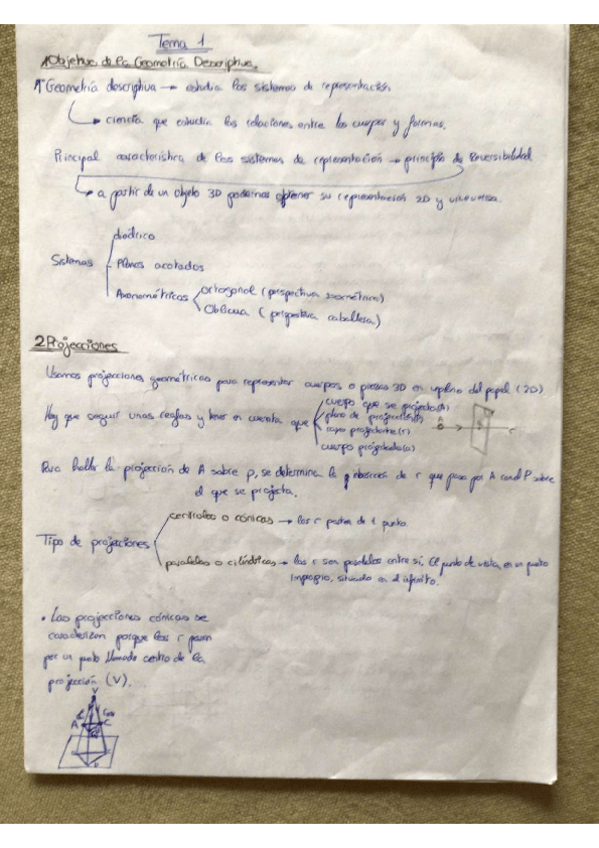 Tema 1
1 Objetivo de la Geometría Descriptiva.
Geometría descriptiva → estudia los sistemas de representación
ciencia que estudia las relaciones entre los cuerpos y formas.
Principal característica de los sistemas de representación → principio de Reversibilidad
a partir de un objeto 3D podemos obtener su representación 2D y viceversa.
Sistemas
diédrico
Planos acotados
Axonométricos
Ortogonal (perspectiva isométrica)
Oblicua (perspectiva caballera)
2 Projecciones
Usamos projecciones geométricas para representar cuerpos o piezas 3D en plano del papel (2D)
Hay que seguir unas reglas y tener en cuenta que
cuerpo que se projecta (A)
plano de projección (P)
rayo projectante (r)
cuerpo projectado (a)
Para hallar la projección de A sobre p, se determina la intersección de r que pasa por A con el P sobre
el que se projecta.
Tipo de projecciones
centrales o cónicas → los r parten de 1 punto.
paralelas o cilíndricas → los r son paralelos entre si, El punto de vista es un punto
impropio, situado en el infinito.
• Las projecciones cónicas se
caracterizan porque los r pasan
por un punto llamado centro de la
projección (V).
V
A
C